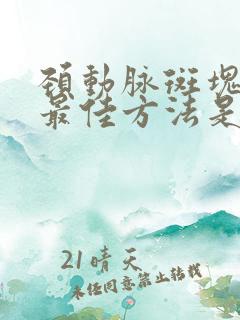 頸動脉斑塊
最佳方法是
21晴天
未任同意禁止转载